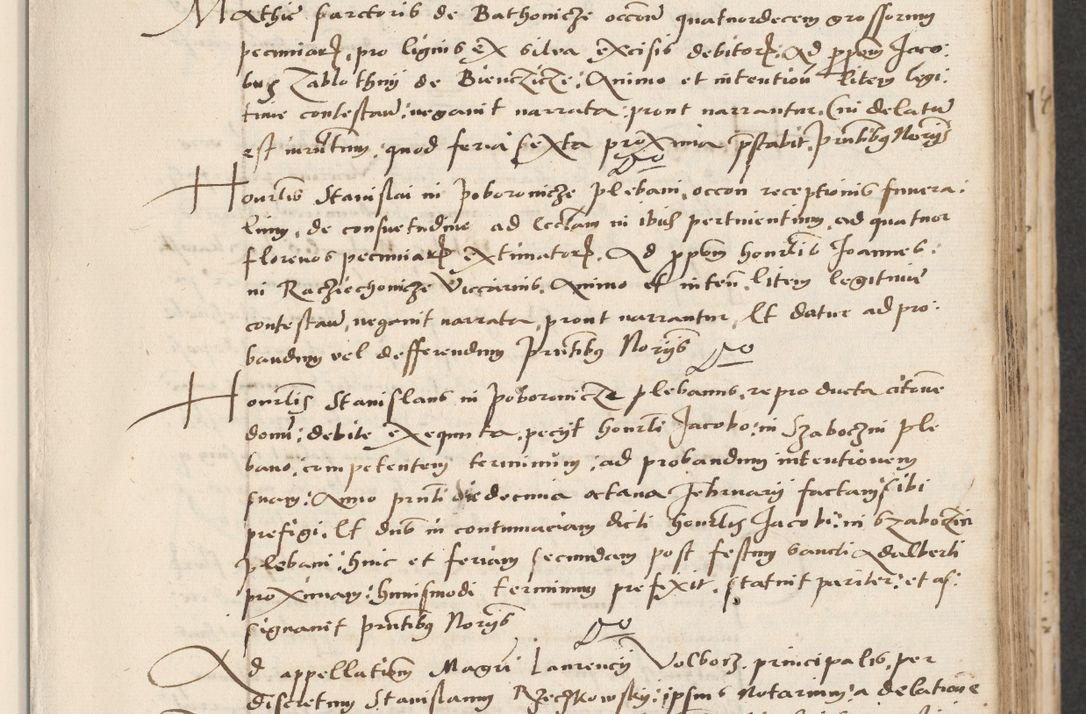 Mathie sarctoris de Bathonicze occone quatuordecem grossorum
pecuniar, pro lignis ex silva excisis debitor, Ad ppem Jaco
bus Zablothny de Bienczicze: Animo et intentiou litem legi:
time contestan: negauit narrata: prout narrantur, Cui delatu
est iurntum, quod feria sexta proxima prstabit, Prntibus Norijs
Honrlis Stanislai in Poboronicze plebani, occon receptionis funera:
lium, de consuetudine ad Eccliam in ibih pertinentium, ad quatuor
florenos pecuniar extimator, Ad ppem honrlis Joannes:
in Racziechonicze Viccarius, Animo et inten, litem legitime
contestan, negauit narrata, prout narrantur, Et datur ad pro:
bandum vel defferendum Prntibus Norijs
Honrlis Stanislaus in Poboronicze plebanus, reproducta citone
domi: debite exequuta, pecijt honrli Jacobo: in Szaboczin ple
bano, competentem terminum: ad probandum intentionem
suam: Anno prnti die decima octaua Februarij factam sibi
prefigi, Et dns in contumaciam dicti honrlis Jacobi: in Szaboczin
plebani: huic et feriam secundam post festum Sancti Adalberti
proximam: huiusmodi terminum prefexit, statuit pariter: et as:
signauit Prntibus Norijs
Ad appellationem Magri Laurencij Volborz, principalis, per
discretum Stanislaum Rzeczkowsky: ipsius notarium: a delatione